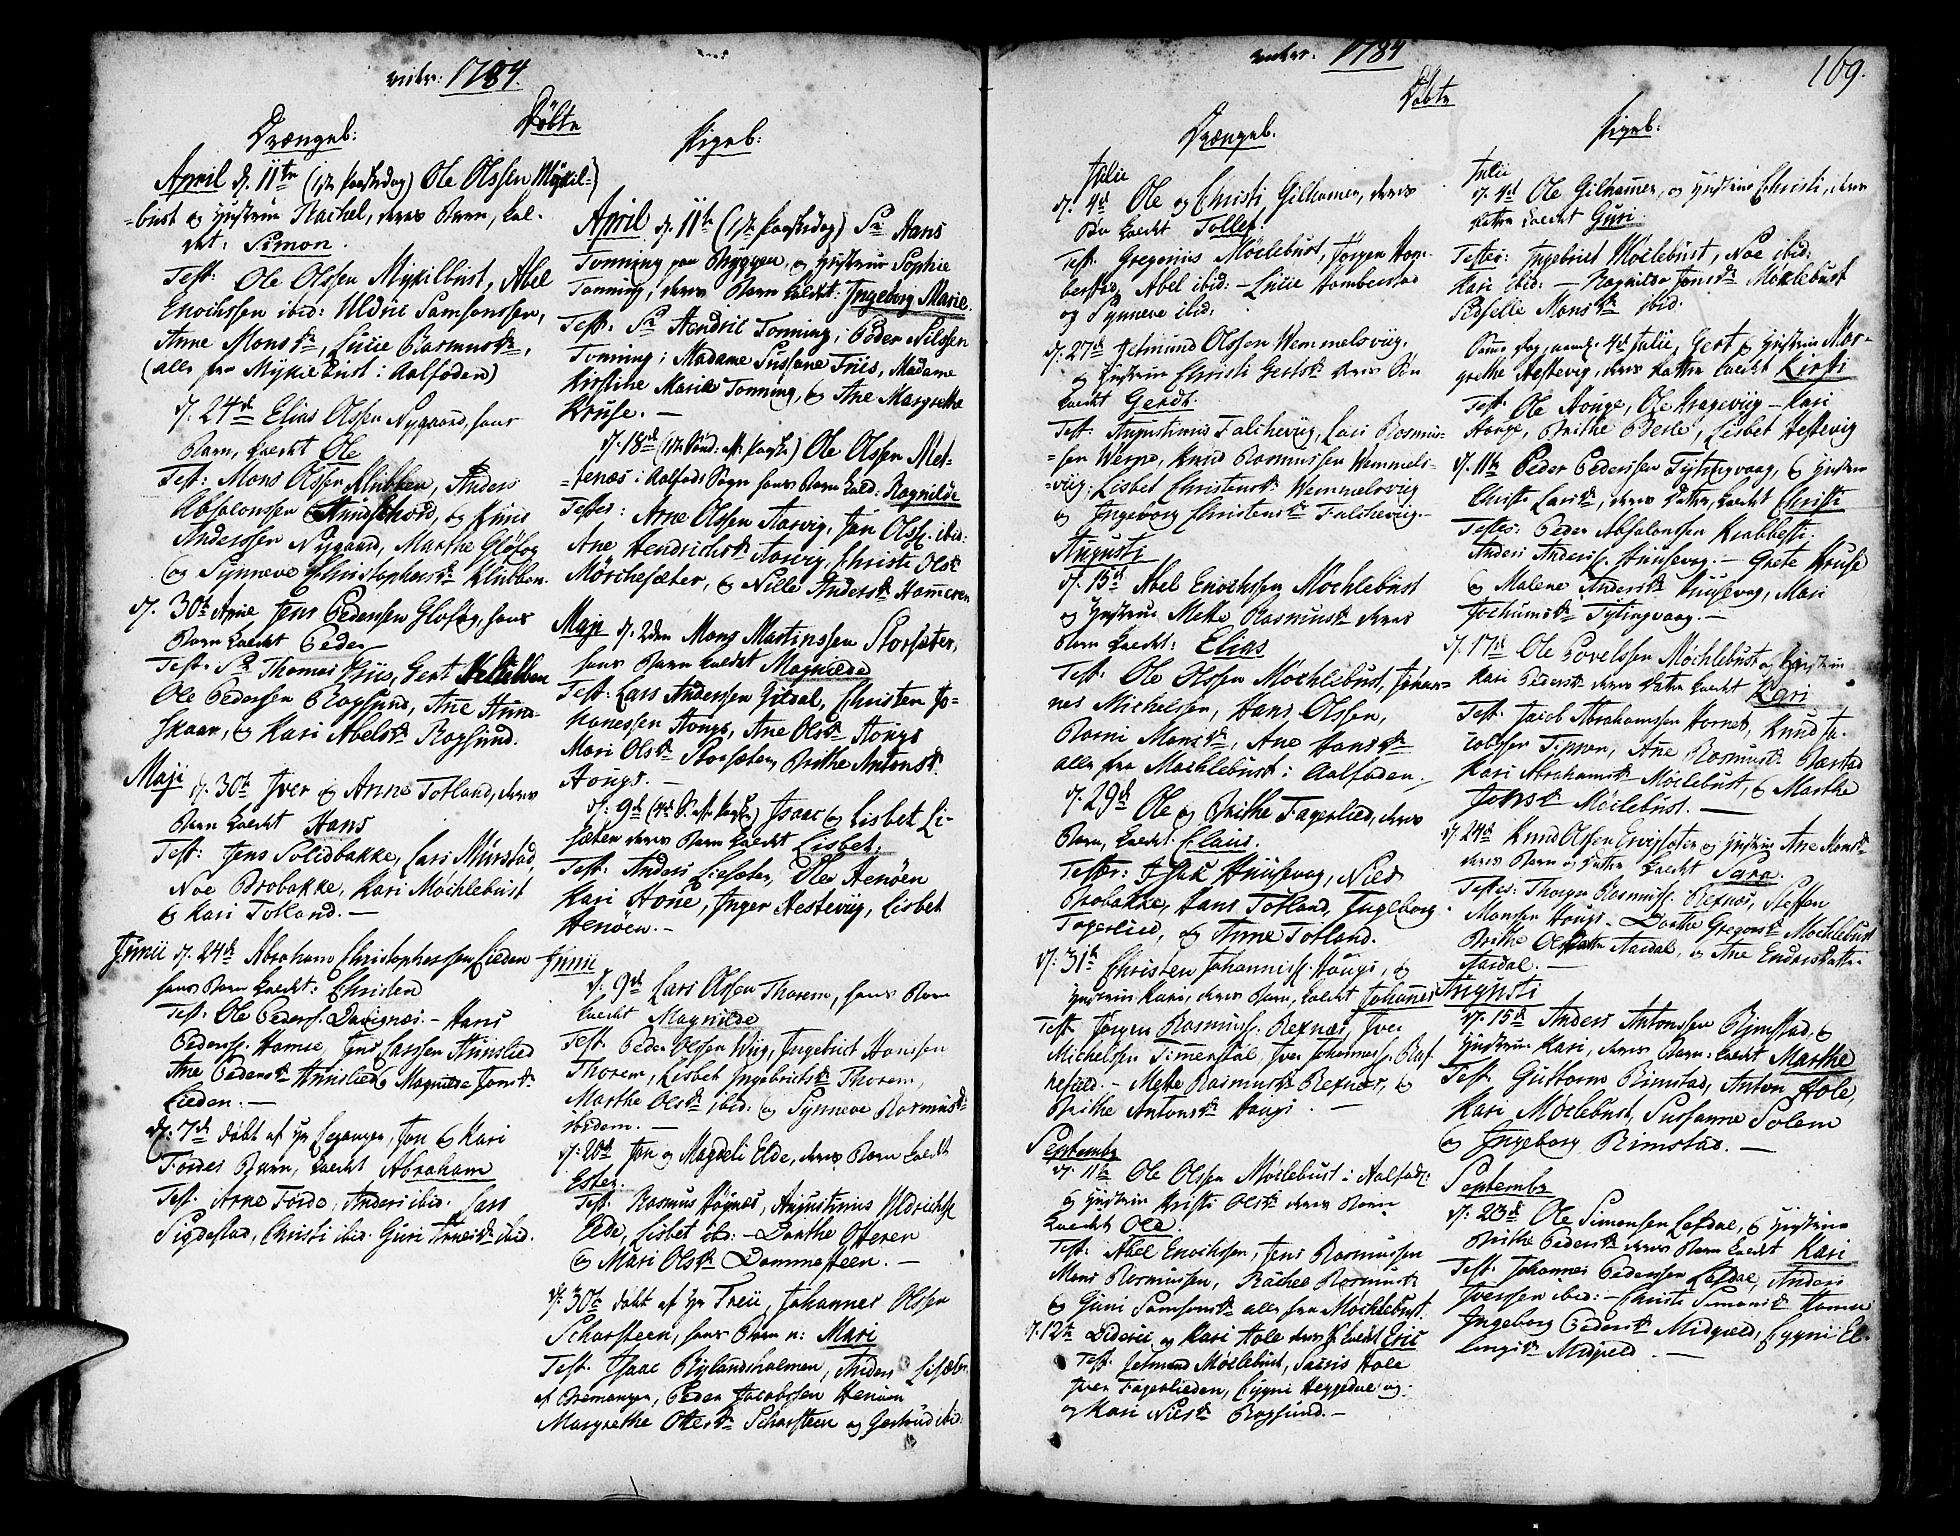 1784.
Döbte
Drængeb:
April d. 11te (1ste Paaskedag) Ole Olssen Mykil-
-bust og Hustrue Rachel, deres Barn, kal-
det: Simon.
Test: Ole Olssen Mykilbust, Abel
Enochssen ibid: Uldric Samsonssen,
Anne Monsdr, Lucie Rasmusdr,
(alle fra Mykelbust i Aalfoden)
d. 24de Elias Olssen Nygaard, hans
Barn, kaldt Ole
Test: Mons Olssen Klubben, Anders
Absalonssen, og
Anderssen Nygaard, Marthe Gloføg
og Synneve Christophersdr Klubben.
d. 30te Jens Pederssen Gloføg, hans
Barn kaldt Peder
Test: Sr Thomas Friis, Gert
Ole Pederssen Rogsund, Ane
skaar, og Kari Abelsdr Rogsund.
Maji d. 30te Iver og Anne Totland, deres
Barn kaldt Hans
Test: Jens Solidbakke, Lars Murstad,
Noe Brobakke, Kari Møchlebust
og Kari Totland.
Junii d. 24de Abraham Christopherssen Lieden
hans Barn kaldt: Christen
Test: Ole Pederss. – Hans
Pederss. Hamre, Jens Larssen Aunslied
Ane Pedersdr Aunslied og Magnilde Jensdr
Lieden.
d. 7de døbt af Hr Leganger, Jon og Kari
Fordes Barn, kaldt Abraham
Test. Arne Forde, Anders ibid. Lars
Sigdestad, Christi ibid. Guri Arnesdr ibid.
Pigeb:
April d. 11te (1ste Paaskedag) Sr Hans
Tonning paa Ryggen, og Hustrue Sophie
Tonning, deres Barn kaldet: Ingeborg Marie.
Test: Sr Hendric Tonning, Peder Nilssen
Tonning, Madame Susanne Friis, Madame
Kirstine Marie Tonning, og Ane Margrethe
Kruse.
d. 18de (1ste Sønd: eft: Paaske) Ole Olssen Mel-
-senæs i Aalfods Sogn hans Barn kald: Ragnilde
Testes: Arne Olssen Aarvig, Jan Olss. ibid:
Ane Hendrichsdr Aarvig, Christi Olsdr
Mörchesæter, og Nille Andersdr Hameren
Maji d. 2den Mons Martinssen Storsæter,
hans Barn kaldet Magnilde
Test: Lars Anderssen Gitdal, Christen Jo-
hanessen Hougs, Ane Olsdr Hougs
Mari Olsdr Storsæter, Brithe Antonsdr
Hougs.
d. 9de Isaac og Lisbet Li-
sæter deres Barn kaldt Lisbet.
Test: Anders Liesæter, Ole Henøen
Kari Hone, Inger Hestevig, Lisbet
Henøen.
Junii
d. 9de Lars Olssen Thorem, hans Barn
kaldt Magnilde
Test: Peder Olssen Wiig, Ingebrict Hanssen
Thorem, Lisbet Ingebrictsdr Thorem,
Marthe Olsdr ibid: og Synneve Rasmusdr
ibidem.
d. 20de Jon og Magdeli Elde, deres Barn kaldt
Ester.
Test. Rasmus Høynes, Augustinus Uldrichss.
Elde, Lisbet ibid: – Dorthe Ofteren
og Mari Olsdr Dommesteen.
d. 30te døbt af Hr Treii, Johannes Olssen
Scharsteen, hans Barn n: Mari
Test. Isaac Rylandsholmen, Anders Lisæter
af Bremanger, Peder Jacobssen Henøen
Margrethe Ottesdr Scharsteen og Gertrud ibid:
1784
169.
Döbte
Drængeb.
Julii
d. 4de Ole og Christi Gilhamer, deres
Søn kaldt Tollef.
Test. Gregorius Møclebust, Jørgen Hom-
berstad, Abel ibid: – Lucie Homberstad
og Synneve ibid:
d. 27de Jetmund Olssen Wemmelsvig,
og Hustrue Christi Gertsdr deres Søn
kaldt Gerdt.
Test: Augustinus Falchevig, Lars Rasmus-
-sen Werpe, Knud Rasmussen Wemmels-
-vig, Lisbet Christensdr Wemmelsvig
og Ingeborg Christensdr Falchevig.
Augusti
d. 15de Abel Enochssen Møchlebust
og Hustrue Mette Rasmusdr deres
Barn kaldt: Elias
Test: Ole Olssen Møchlebust, Johan-
nes Michelssen, Hans Olssen,
Barni Monsdr, Ane Hansdr
alle fra Møchlebust i Aalfoden.
d. 29de Ole og Brithe Fagerlied, deres
Barn, kaldt Claus.
Tester: Isak Huusevog, Niels
Brobakke, Hans Totland, Ingeborg
Fagerlied, og Anne Totland.
d. 31te Christen Johanniss. Hougs, og
Hustrue Kari, deres Barn, kaldt Johannes
Test Jørgen Rasmuss. Rexnæs, Iver
Michelssen Timenstal, Iver Johanness.
– Mette Rasmusdr Rexnæs, og
Brithe Antonsdr Hougs.
Septembr
d. 11te Ole Olssen Møclebust i Aalfod:
og Hustrue Kirsti Olsdr deres Barn
kaldt Ole.
Test: Abel Enochssen, Jens Rasmussen
Mons Rasmussen, Rachel Rasmusdr
og Guni Samsonsdr alle fra Møchlebust.
d. 12te Dideric og Kari Hole deres S. kaldt Eric
Test. Jetmund Møclebust, Hole
Iver Fagerlieden, Eygni Heggedal og
og Kari Nilsdr Rogsund.
Pigeb:
Julii
d. 4de Ole Gilhamer, og Hustrue Christi, deres
Datter kaldt Guri.
Testes: Ingebrict Møclebust, Noe ibid:
Kari ibid: – Ragnilde Jonsdr Møklebust
Sidselle Monsdr ibid:
Samme dag, nemlig 4de Julii, Gert og Hustrue Mar-
grethe Hestevig, deres Datter kaldt Kirsti
Test: Ole Houge, Ole Kragevig – Kari
Houge, Brithe Berle, Lisbet Hestevig
d. 11te Peder Pederssen Tytingvaag, og Hustrue
Christi Larsdr, deres Datter, kaldt Christi
Testes: Peder Absalonssen Krabbesti
Anders Anderss. Huusevog. – Grete Kruse
og Malene Andersdr Huusevog, Mari
Jochumsdr Tytingvaag.
d. 17de Ole Povelssen Møchlebust og Hustrue
Kari Pedersdr deres Datter kaldt Kari
Test. Jacob Abrahamssen Hornet, Knud Ja-
cobssen Tippen, Ane Rasmusdr Bastad
Kari Abrahamsdr Møclebust, og Marthe
Jonsdr Møclebust.
d. 24de Knud Olssen Envisæter og Hustrue Ane Monsdr
deres Barn og Datter kaldt Sara
Testes: Thorger Rasmuss. Rexnæs, Steffen
Monssen Hougs – Dorthe Gregorsdr Møchlebust
Brithe Olsdatter Aardal, og Ane Endresdatter
Aardal.
Augusti
d. 15de Anders Antonssen Rimstad, og
Hustrue Kari, deres Barn kaldt Marthe
Test: Guttorm Rimstad, Anton Hole,
Kari Møclebust, Susanna Solem
og Ingeborg Rimstad.
Septembr
d. 23de Ole Simonsen Løsdal, og Hustrue
Brithe Pedersdr deres Barn kaldt Kari
Test. Johannes Pederssen Løfdal, Anders
Iverssen ibid: – Christi Simonsdr Hamre
Ingeborg Pedersdr Midgield, Eygni El-
lingsdr Midgield